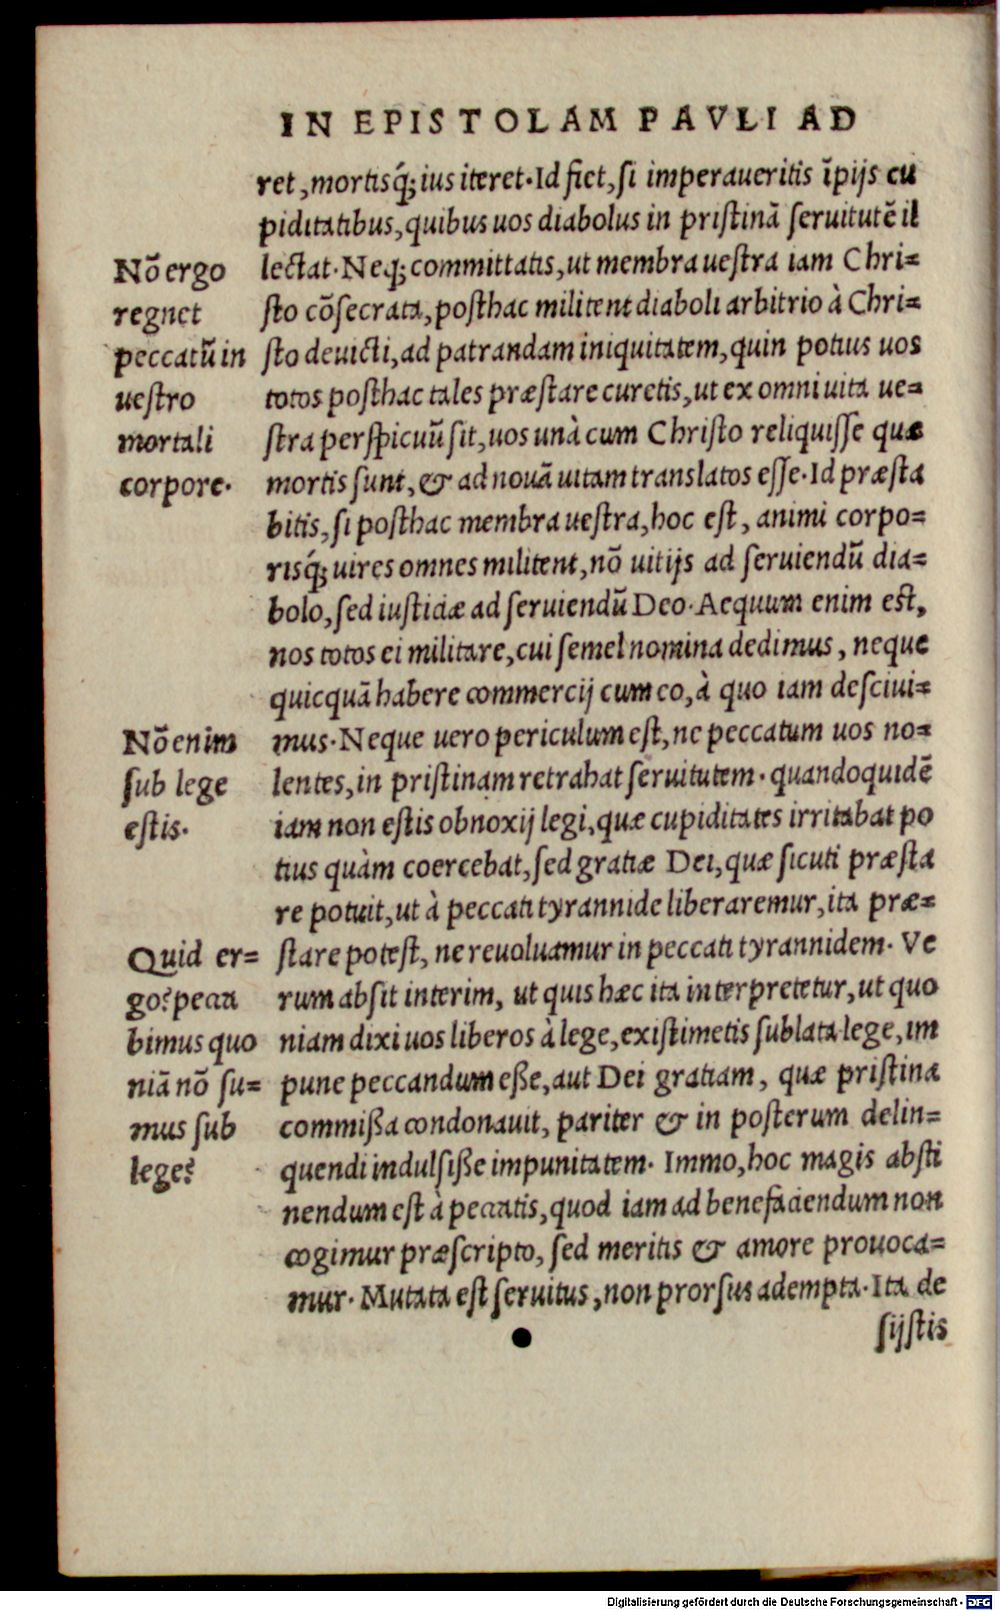 IN EPISTOLAM PAVLI AD
ret, mortisq́; ius iteret. Id fiet, si imperaueritis īpijs cu
piditatibus, quibus uos diabolus in pristinā seruitutē il
lectat. Neq; committatis, ut membra uestra iam Chri=
sto cōsecrata, posthac militent diaboli arbitrio à Chri=
sto deuicti, ad patrandam iniquitatem, quin potius uos
totos posthac tales præstare curetis, ut ex omni uita ue=
stra perspicuū sit, uos unà cum Christo reliquisse quæ
mortis sunt, & ad nouā uitam translatos esse. Id præsta
bitis, si posthac membra uestra, hoc est, animi corpo=
risq́; uires omnes militent, nō uitijs ad seruiendū dia=
bolo, sed iusticiæ ad seruiendū Deo. Aequum enim est,
nos totos ei militare, cui semel nomina dedimus, neque
quicquā habere commercij cum eo, à quo iam desciui=
mus. Neque uero periculum est, ne peccatum uos no=
lentes, in pristinam retrahat seruitutem. quandoquidē
iam non estis obnoxij legi, quæ cupiditates irritabat po
tius quàm coercebat, sed gratiæ Dei, quæ sicuti præsta
re potuit, ut à peccati tyrannide liberaremur, ita præ=
stare potest, ne reuoluamur in peccati tyrannidem. Ve
rum absit interim, ut quis hæc ita interpretetur, ut quo
niam dixi uos liberos à lege, existimetis sublata lege, im
pune peccandum eße, aut Dei gratiam, quæ pristina
commißa condonauit, pariter & in posterum delin=
quendi indulsiße impunitatem. Immo, hoc magis absti
nendum est à peccatis, quod iam ad benefaciendum non
cogimur præscripto, sed meritis & amore prouoca=
mur. Mutata est seruitus, non prorsus adempta. Ita de
sijstis
Nō ergo
regnet
peccatū in
uestro
mortali
corpore.
Nō enim
sub lege
estis.
Quid er=
go? pecca
bimus quo
niā nō su=
mus sub
lege?
Digitalisierung gefördert durch die Deutsche Forschungsgemeinschaft - DFG